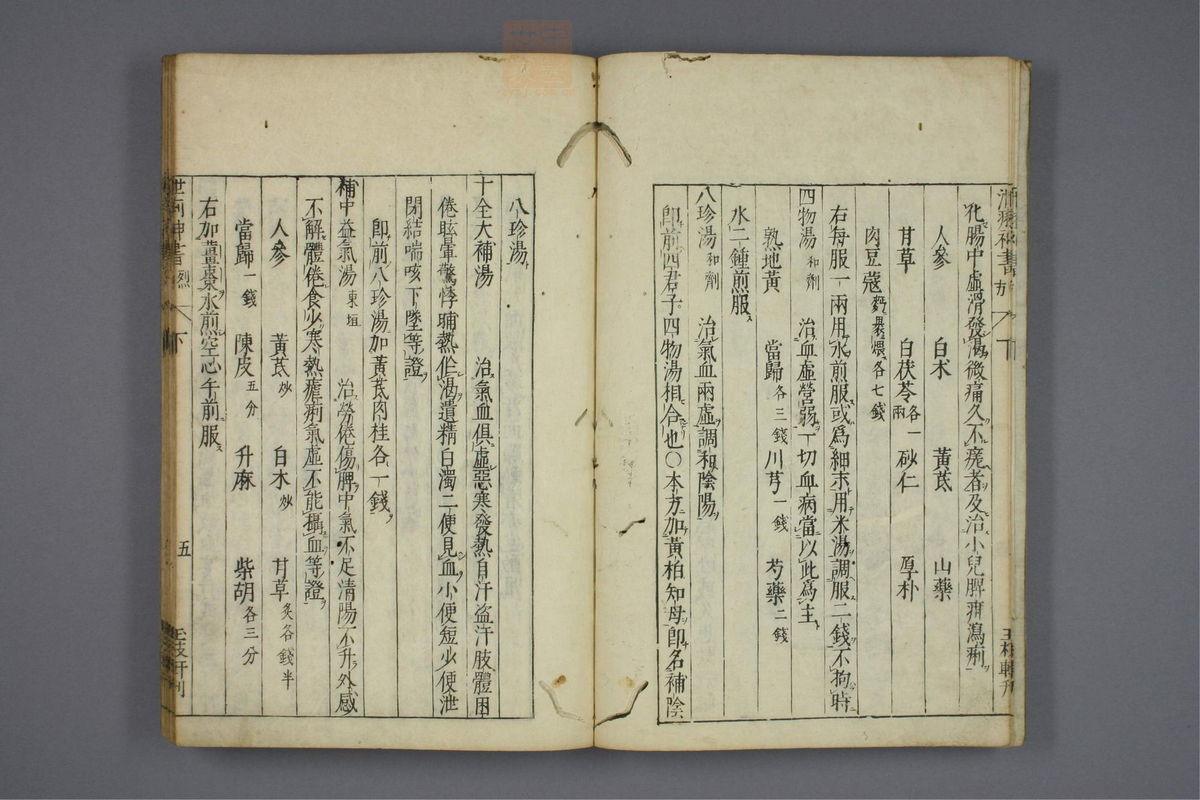 化腸中虛滑發渴微痛久不瘥者及治小兒脾疳瀉痢
人參 白朮 黃芪 山藥
甘草 白茯苓各一兩 砂仁 厚朴
肉豆蔻麪裹煨各七錢
右每服一兩用水煎服或爲細末用米湯調服二錢不拘時
四物湯 和劑 治血虛營弱一切血病當以此爲主
熟地黃 當歸各三錢 川芎一錢 芍藥二錢
水二鍾煎服
八珍湯 和劑 治氣血兩虛調和陰陽
卽前四君子四物湯相合也〇本方加黃柏知母卽名補陰
八珍湯
十全大補湯 治氣血俱虛惡寒發熱自汗盜汗肢體困
倦眩暈驚悸晡熱作渴遺精白濁二便見血小便短少便泄
閉結喘咳下墜等證
卽前八珍湯加黃芪肉桂各一錢
補中益氣湯 東垣 治勞倦傷脾中氣不足清陽不升外感
不解體倦食少寒熱瘧痢氣虛不能攝血等證
人參 黃芪炒 白朮炒 甘草炙各錢半
當歸一錢 陳皮五分 升麻 柴胡各三分
右加薑棗水煎空心午前服
下 五